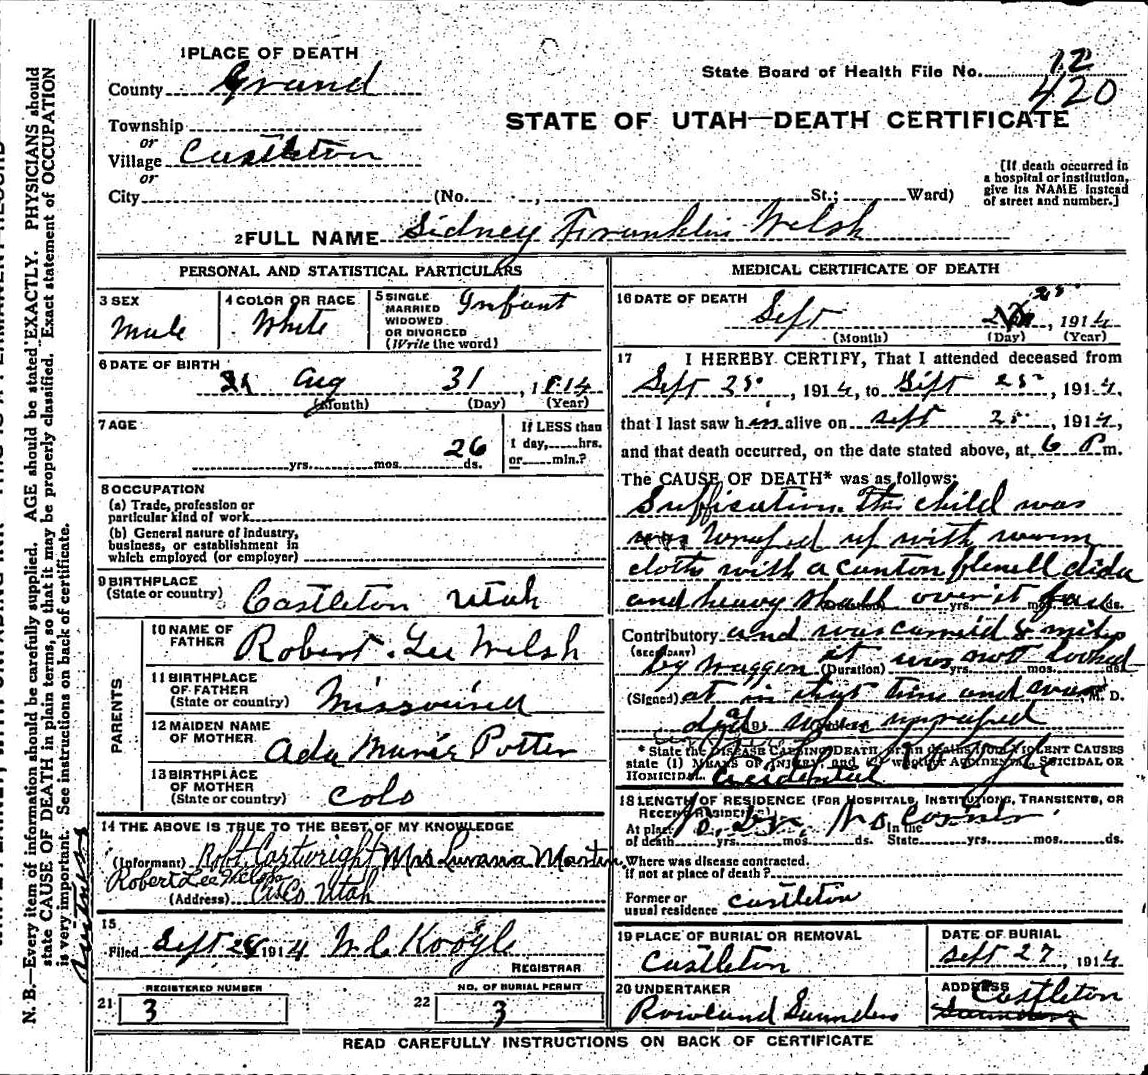 1 PLACE OF DEATH
County Grand
State Board of Health File No. 12
420
Township
or
Village Castleton
or
City (No. , St.; Ward)
STATE OF UTAH—DEATH CERTIFICATE
[If death occurred in
a hospital or institution,
give its NAME instead
of street and number.]
2 FULL NAME Sidney Franklin Welsh
PERSONAL AND STATISTICAL PARTICULARS
3 SEX
Male
4 COLOR OR RACE
White
5 SINGLE
MARRIED
WIDOWED
OR DIVORCED
(Write the word)
Infant
6 DATE OF BIRTH
Aug 31, 1914
(Month) (Day) (Year)
7 AGE
yrs. mos. 26 ds.
If LESS than
1 day, hrs.
or min.?
8 OCCUPATION
(a) Trade, profession or
particular kind of work
(b) General nature of industry,
business, or establishment in
which employed (or employer)
9 BIRTHPLACE
(State or country)
Castleton Utah
PARENTS
10 NAME OF
FATHER
Robert Lee Welsh
11 BIRTHPLACE
OF FATHER
(State or country)
Missouri
12 MAIDEN NAME
OF MOTHER
Ada Marie Potter
13 BIRTHPLACE
OF MOTHER
(State or country)
Colo
14 THE ABOVE IS TRUE TO THE BEST OF MY KNOWLEDGE
(Informant) Robt. Cartwright Mrs Martin
Robert Lee Welsh
(Address) Cisco Utah
15
Filed Sept 28 1914 W C Kooyle
REGISTRAR
REGISTERED NUMBER
21 3
NO. OF BURIAL PERMIT
22 3
MEDICAL CERTIFICATE OF DEATH
16 DATE OF DEATH
Sept 25, 1914
(Month) (Day) (Year)
17 I HEREBY CERTIFY, That I attended deceased from
Sept 25, 1914, to Sept 25, 1914,
that I last saw him alive on Sept 25, 1914,
and that death occurred, on the date stated above, at 6 P m.
The CAUSE OF DEATH* was as follows:
Suffication. The child was
was wraped up with warm
cloth with a canton flenell
and heavy shall over it face
Contributory and was carreid 8 miles
(SECONDARY)
by waggon (Duration) was not looked
(Signed) at in that time and was M. D.
dead when unwraped
* State the DISEASE CAUSING DEATH, or, in deaths from VIOLENT CAUSES
state (1) MEANS OF INJURY; and (2) whether ACCIDENTAL, SUICIDAL OR
HOMICIDAL.
Accidental
18 LENGTH OF RESIDENCE (FOR HOSPITALS, INSTITUTIONS, TRANSIENTS, OR
RECENT RESIDENTS)
At place
of death yrs. mos. ds.
In the
State yrs. mos. ds.
No Coroner
Where was disease contracted,
if not at place of death?
Former or
usual residence Castleton
19 PLACE OF BURIAL OR REMOVAL
Castleton
DATE OF BURIAL
Sept 27, 1914
20 UNDERTAKER
Rowland Saunders
ADDRESS
Castleton
READ CAREFULLY INSTRUCTIONS ON BACK OF CERTIFICATE
N. B.—Every item of information should be carefully supplied. AGE should be stated EXACTLY. PHYSICIANS should
state CAUSE OF DEATH in plain terms, so that it may be properly classified. Exact statement of OCCUPATION
is very important. See instructions on back of certificate.